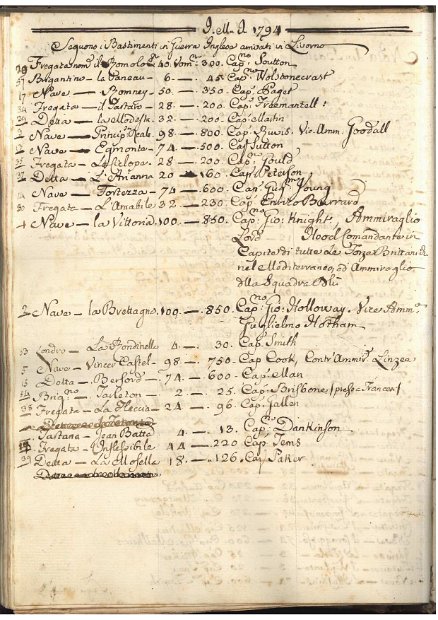 1794
Seguono i Bastimenti in Guerra Inglesi arrivati in Livorno
Fregata nom. il Romolo 40 Uom. 300. Cap. Sutton
57 Brigantino — 6 — 45 Cap. Wolstonecraft
17 Nave — Romney — 50 — 350. Cap. Paget
Fregata — il Tartaro — 28 — 200. Cap. Freemantell
Detta — 32 — 200. Cap. Martin
2 Nave — Princip. Reale — 98 — 800 Cap. Vic. Amm. Goodall
12 Nave — Egmonte — 74 — 500. Cap. Sutton
Fregata — 28 — 200 Cap. Gould
Detta — L'Arianna 20 — 160 Cap. Peterson
Nave — Fortezza — 74 — 600. Cap. Young
30 Fregata — L'Amabile 32 — 230. Cap. Enrico
4 Nave — la Vittoria 100 — 850. Cap. Gio: Knight, Ammiraglio
Lord Hood Comandante in
Capite di tutte le Forze Brittani
nel Mediterraneo, ed Ammiraglio
della Squadra Blù
2 Nave — la Brettagna 100 — 850. Cap. Gio: Holloway. Vice Amm.
Guglielmo Hotham
La Rondinella — 4 — 30. Cap. Smith
5 Nave — 98 — 750. Cap. Cook, Contr'Ammir. Linzea
Detta — 74 — 600. Cap. Man
Brig. — Tarleton — 2 — 25. Cap.
Fregata — La Fleccia — 24 — 96. Cap.
Tartana — Jean Batta 4 — 13. Cap. Dankinson
Fregata — Inflessibile 44 — 220 Cap. Tems
39 Detta — La Moselle 18 — 126. Cap. Paker